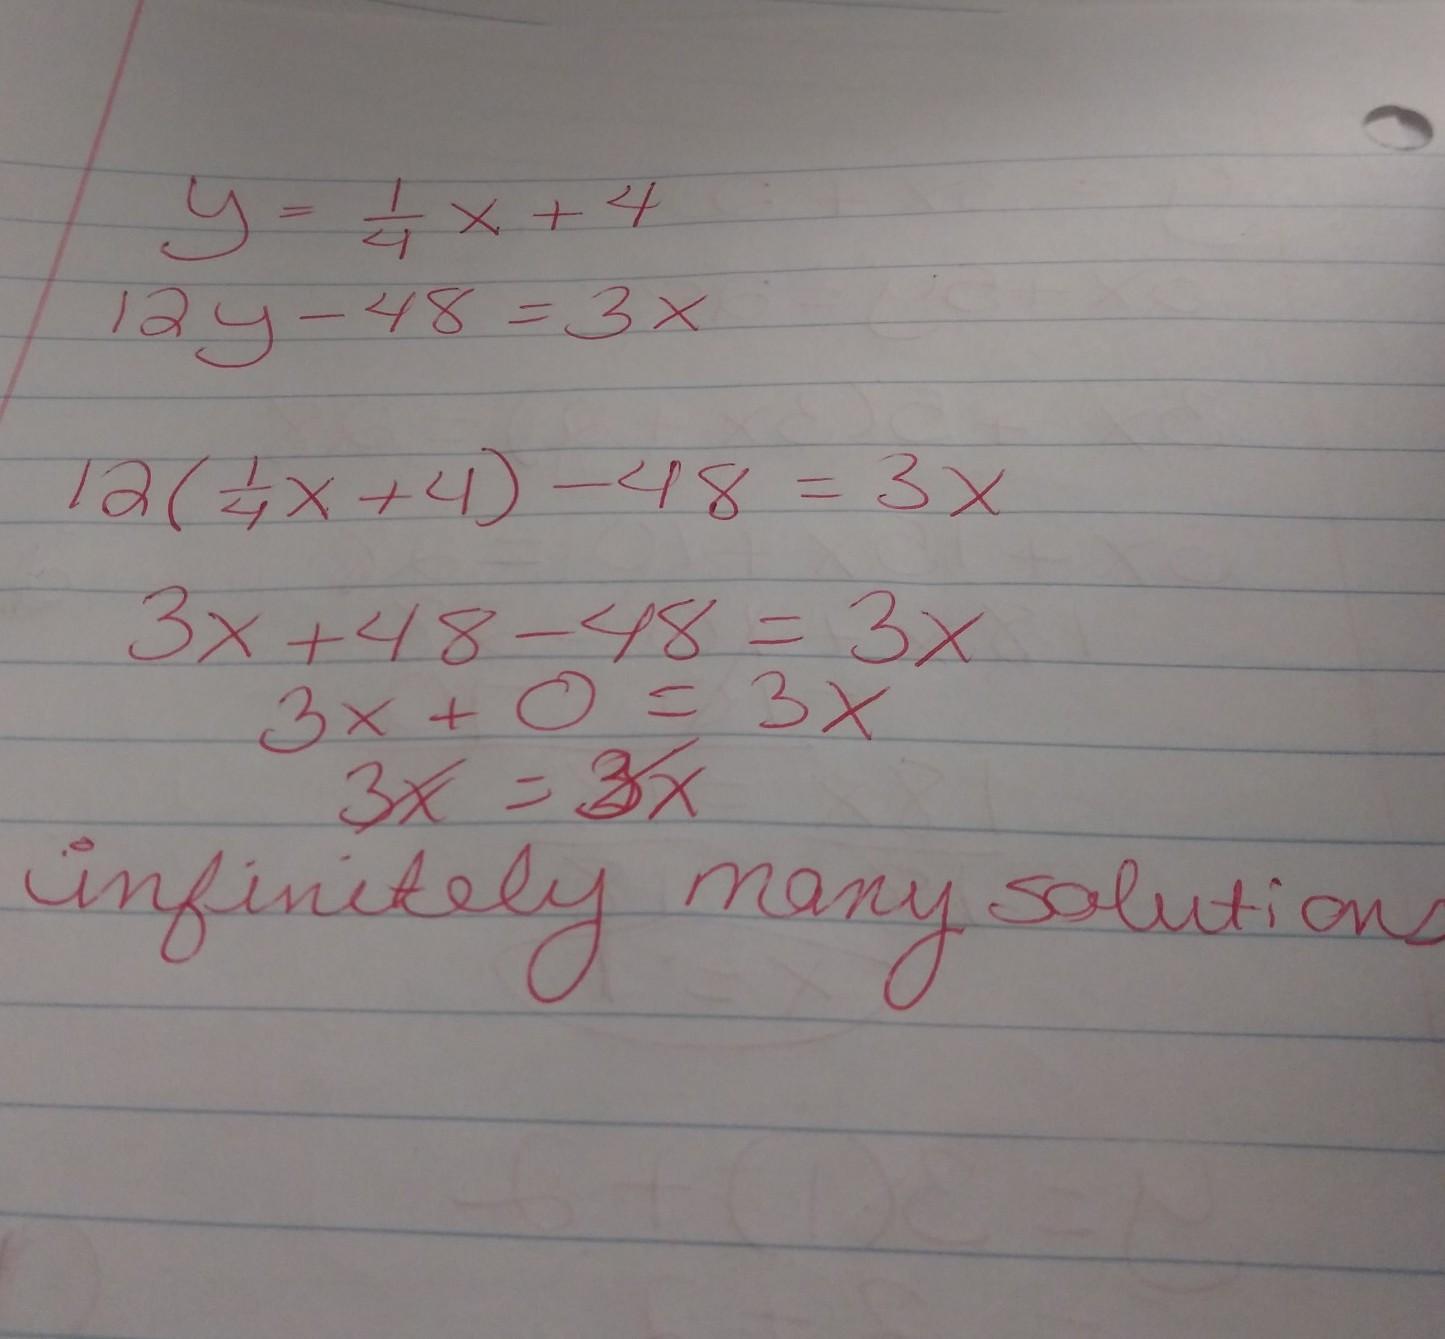 y = 1/4 x + 4
12y - 48 = 3x
12(1/4x + 4) - 48 = 3x
3x + 48 - 48 = 3x
3x + 0 = 3x
3x = 3x
infinitely many solutions